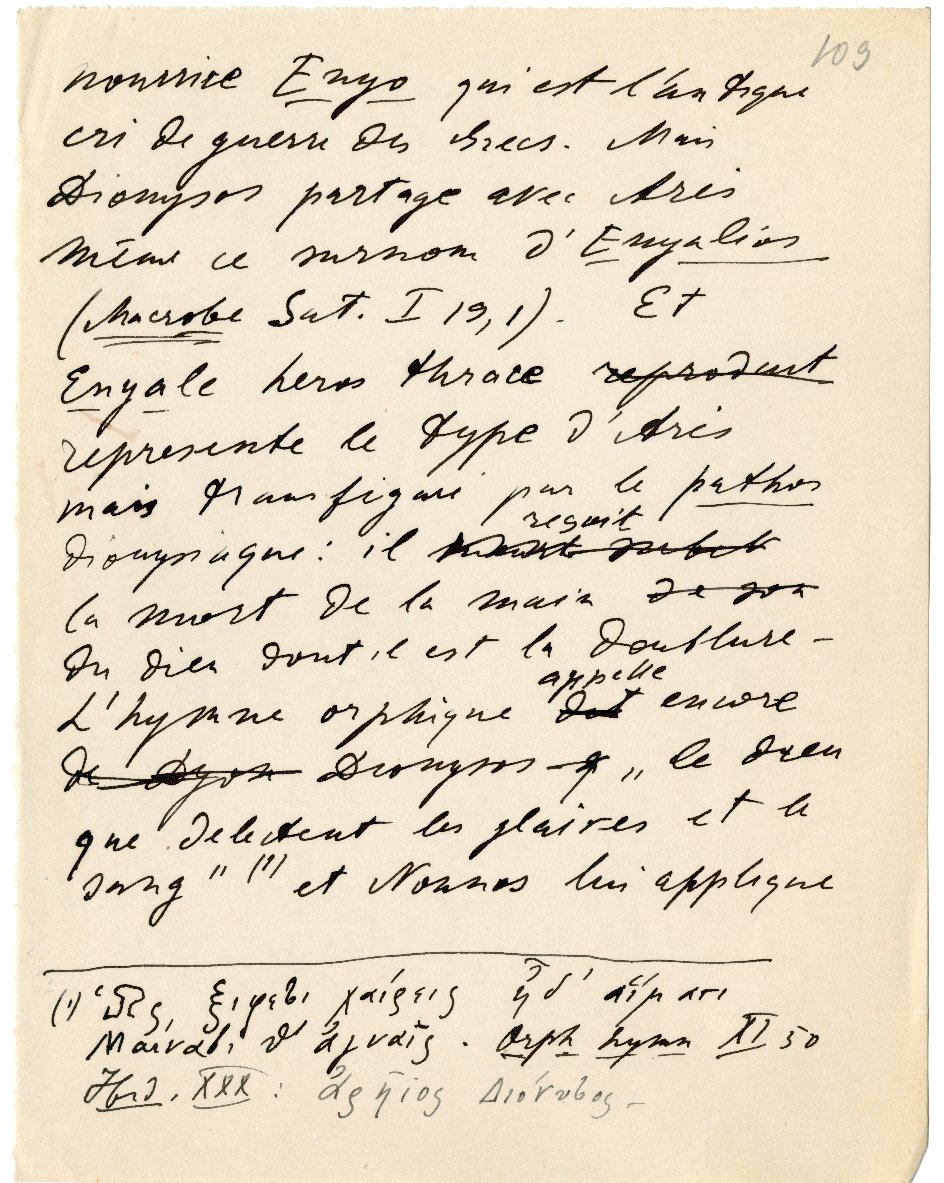 109
nourrice Enyo qui est l'antique
cri de guerre des Grecs. Mais
Dionysos partage avec Arès
même ce surnom d'Enyalios
(Macrobe Sat. I 19,1). Et
Enyale heros thrace reproduit
represente le type d'Arès
mais transfiguré par le pathos
reçoit
dionysiaque: il
la mort de la main de son
du dieu dont il est la doublure –
appelle
L'hymne orphique dit encore
de Dyon Dionysos „le dieu
que delectent les glaives et le
sang" (1) et Nonnos lui applique
(1) Ὃς ξίφεσι χαίρεις ἠδ' αἵματι
Μαινάσι θ' ἁγναῖς. Orph hymn XI 50
Ibid. XXX: ἀρήιος Διόνυσος –